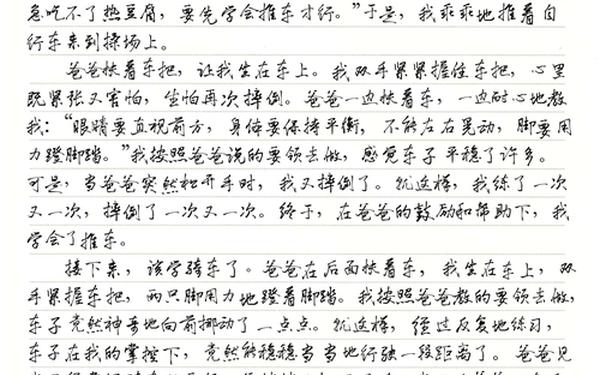 急吃不了热豆腐，要先学会推车才行。”于是，我乖乖地推着自
行车来到操场上。
爸爸扶着车把，让我坐在车上。我双手紧紧握住车把，心里
既紧张又害怕，生怕再次摔倒。爸爸一边扶着车，一边耐心地教
我：“眼睛要直视前方，身体要保持平衡，不能左右晃动，脚要用
力蹬脚踏。”我按照爸爸说的要领去做，感觉车子平稳了许多。
可是，当爸爸突然松开手时，我又摔倒了。就这样，我练了一次
又一次，摔倒了一次又一次。终于，在爸爸的鼓励和帮助下，我
学会了推车。
接下来，该学骑车了。爸爸在后面扶着车，我坐在车上，双
手紧握车把，两只脚用力地蹬着脚踏。我按照爸爸教的要领去做，
车子竟然神奇地向前挪动了一点点。就这样，经过反复地练习，
车子在我的掌控下，竟然能稳稳当当地行驶一段距离了。爸爸见